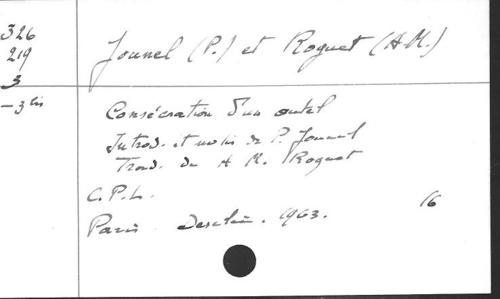 326
219
3
- 3 bis
Jounel (P.) et Roguet (A.M.)
Consécration d'un autel
Introd. et notes de P. Jounel
Trad. de A. M. Roguet
C.P.L.
Paris Desclée. 1963. 16